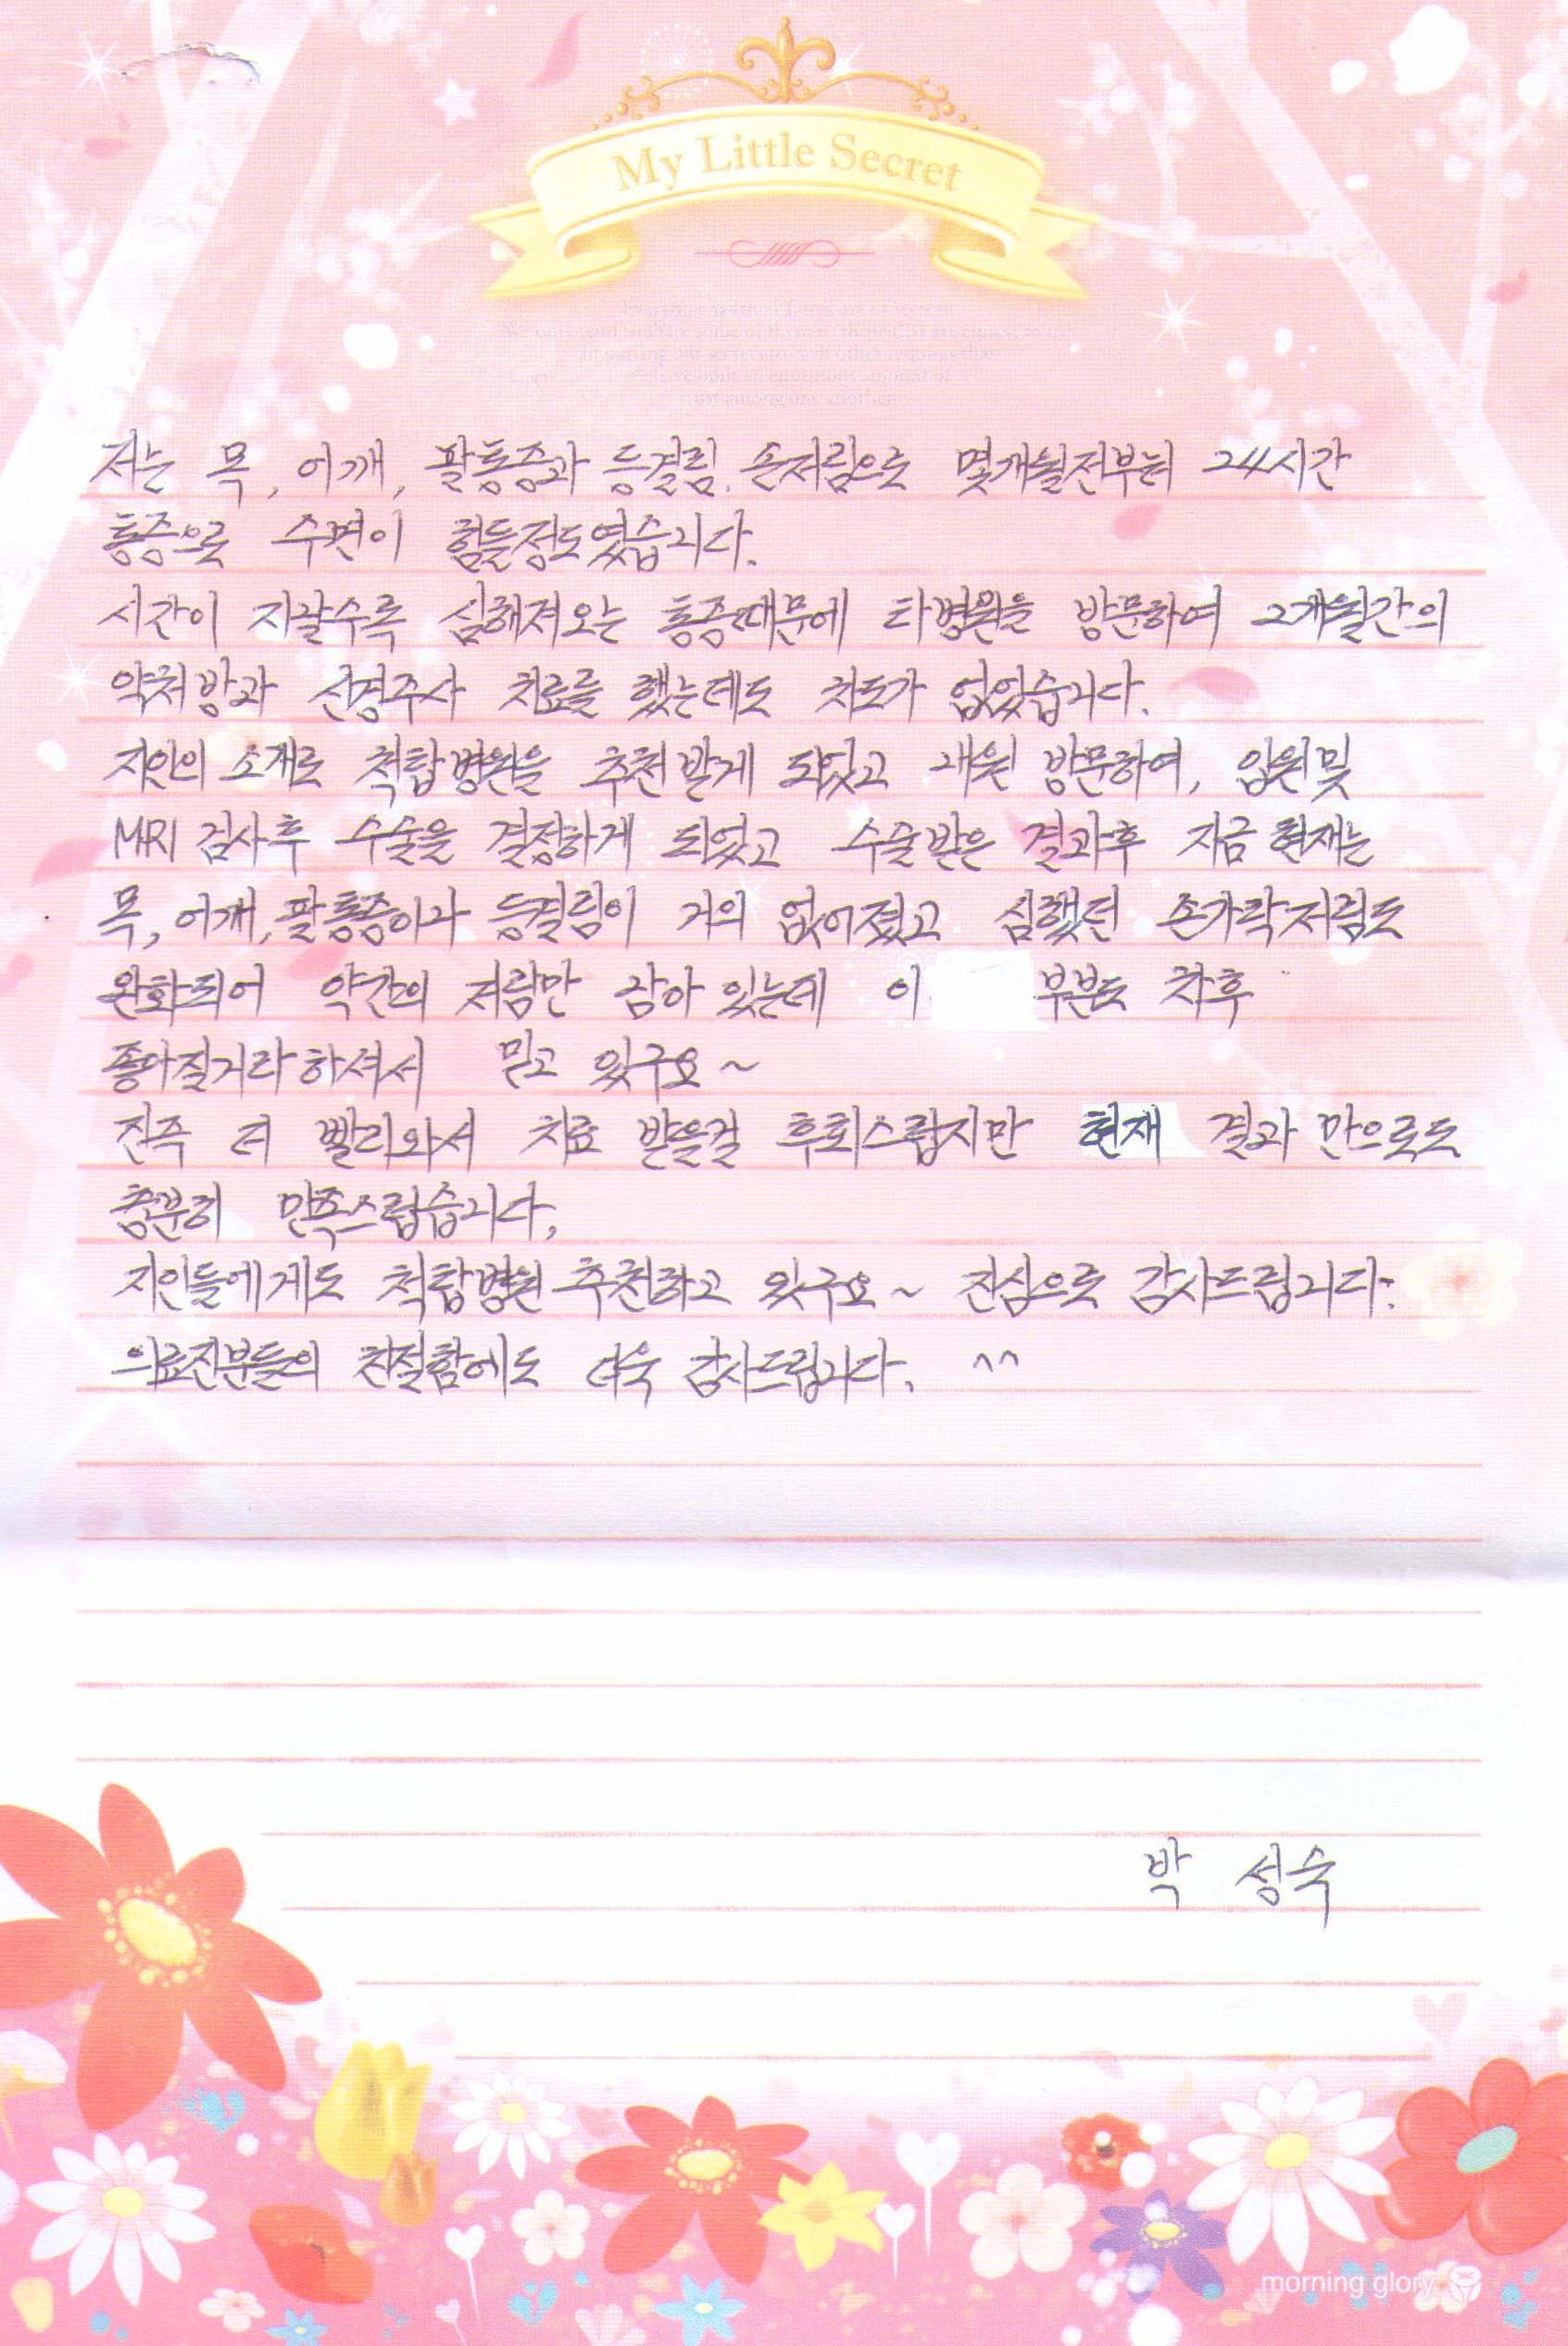 My Little Secret
저는 목, 어깨, 팔통증과 등결림, 손저림으로 몇개월전부터 24시간
통증으로 수면이 힘들정도였습니다.
시간이 지날수록 심해져오는 통증때문에 타병원을 방문하여 2개월간의
약처방과 신경주사 치료를 했는데도 차도가 없었습니다.
지인의 소개로 척탑병원을 추천받게 되었고 내원 방문하여, 입원및
MRI 검사후 수술을 결정하게 되었고 수술받은 결과후 지금 현재는
목, 어깨, 팔통증이과 등결림이 거의 없어졌고 심했던 손가락저림도
완화되어 약간의 저림만 남아 있는데 이 부분도 차후
좋아질거라하셔서 믿고 있구요~
진즉 더 빨리와서 치료 받을걸 후회스럽지만 현재 결과 만으로도
충분히 만족스럽습니다,
지인들에게도 척탑병원 추천하고 있구요~ 진심으로 감사드립니다.
의료진분들의 친절함에도 더욱 감사드립니다. ^^
박 성숙
morning glory